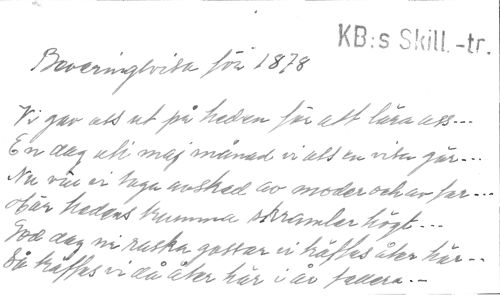 KB:s Skill.-tr.
Beveringsvisa för 1878
Vi gav oss ut på heden för att lära oss...
En dag uti maj månad vi oss en vita går...
Nu vill vi taga avsked av moder och av far...
När hedens trumma skramlar högt...
God dag ni raska gossar vi träffas åter här...
Så träffas vi då åter här i år